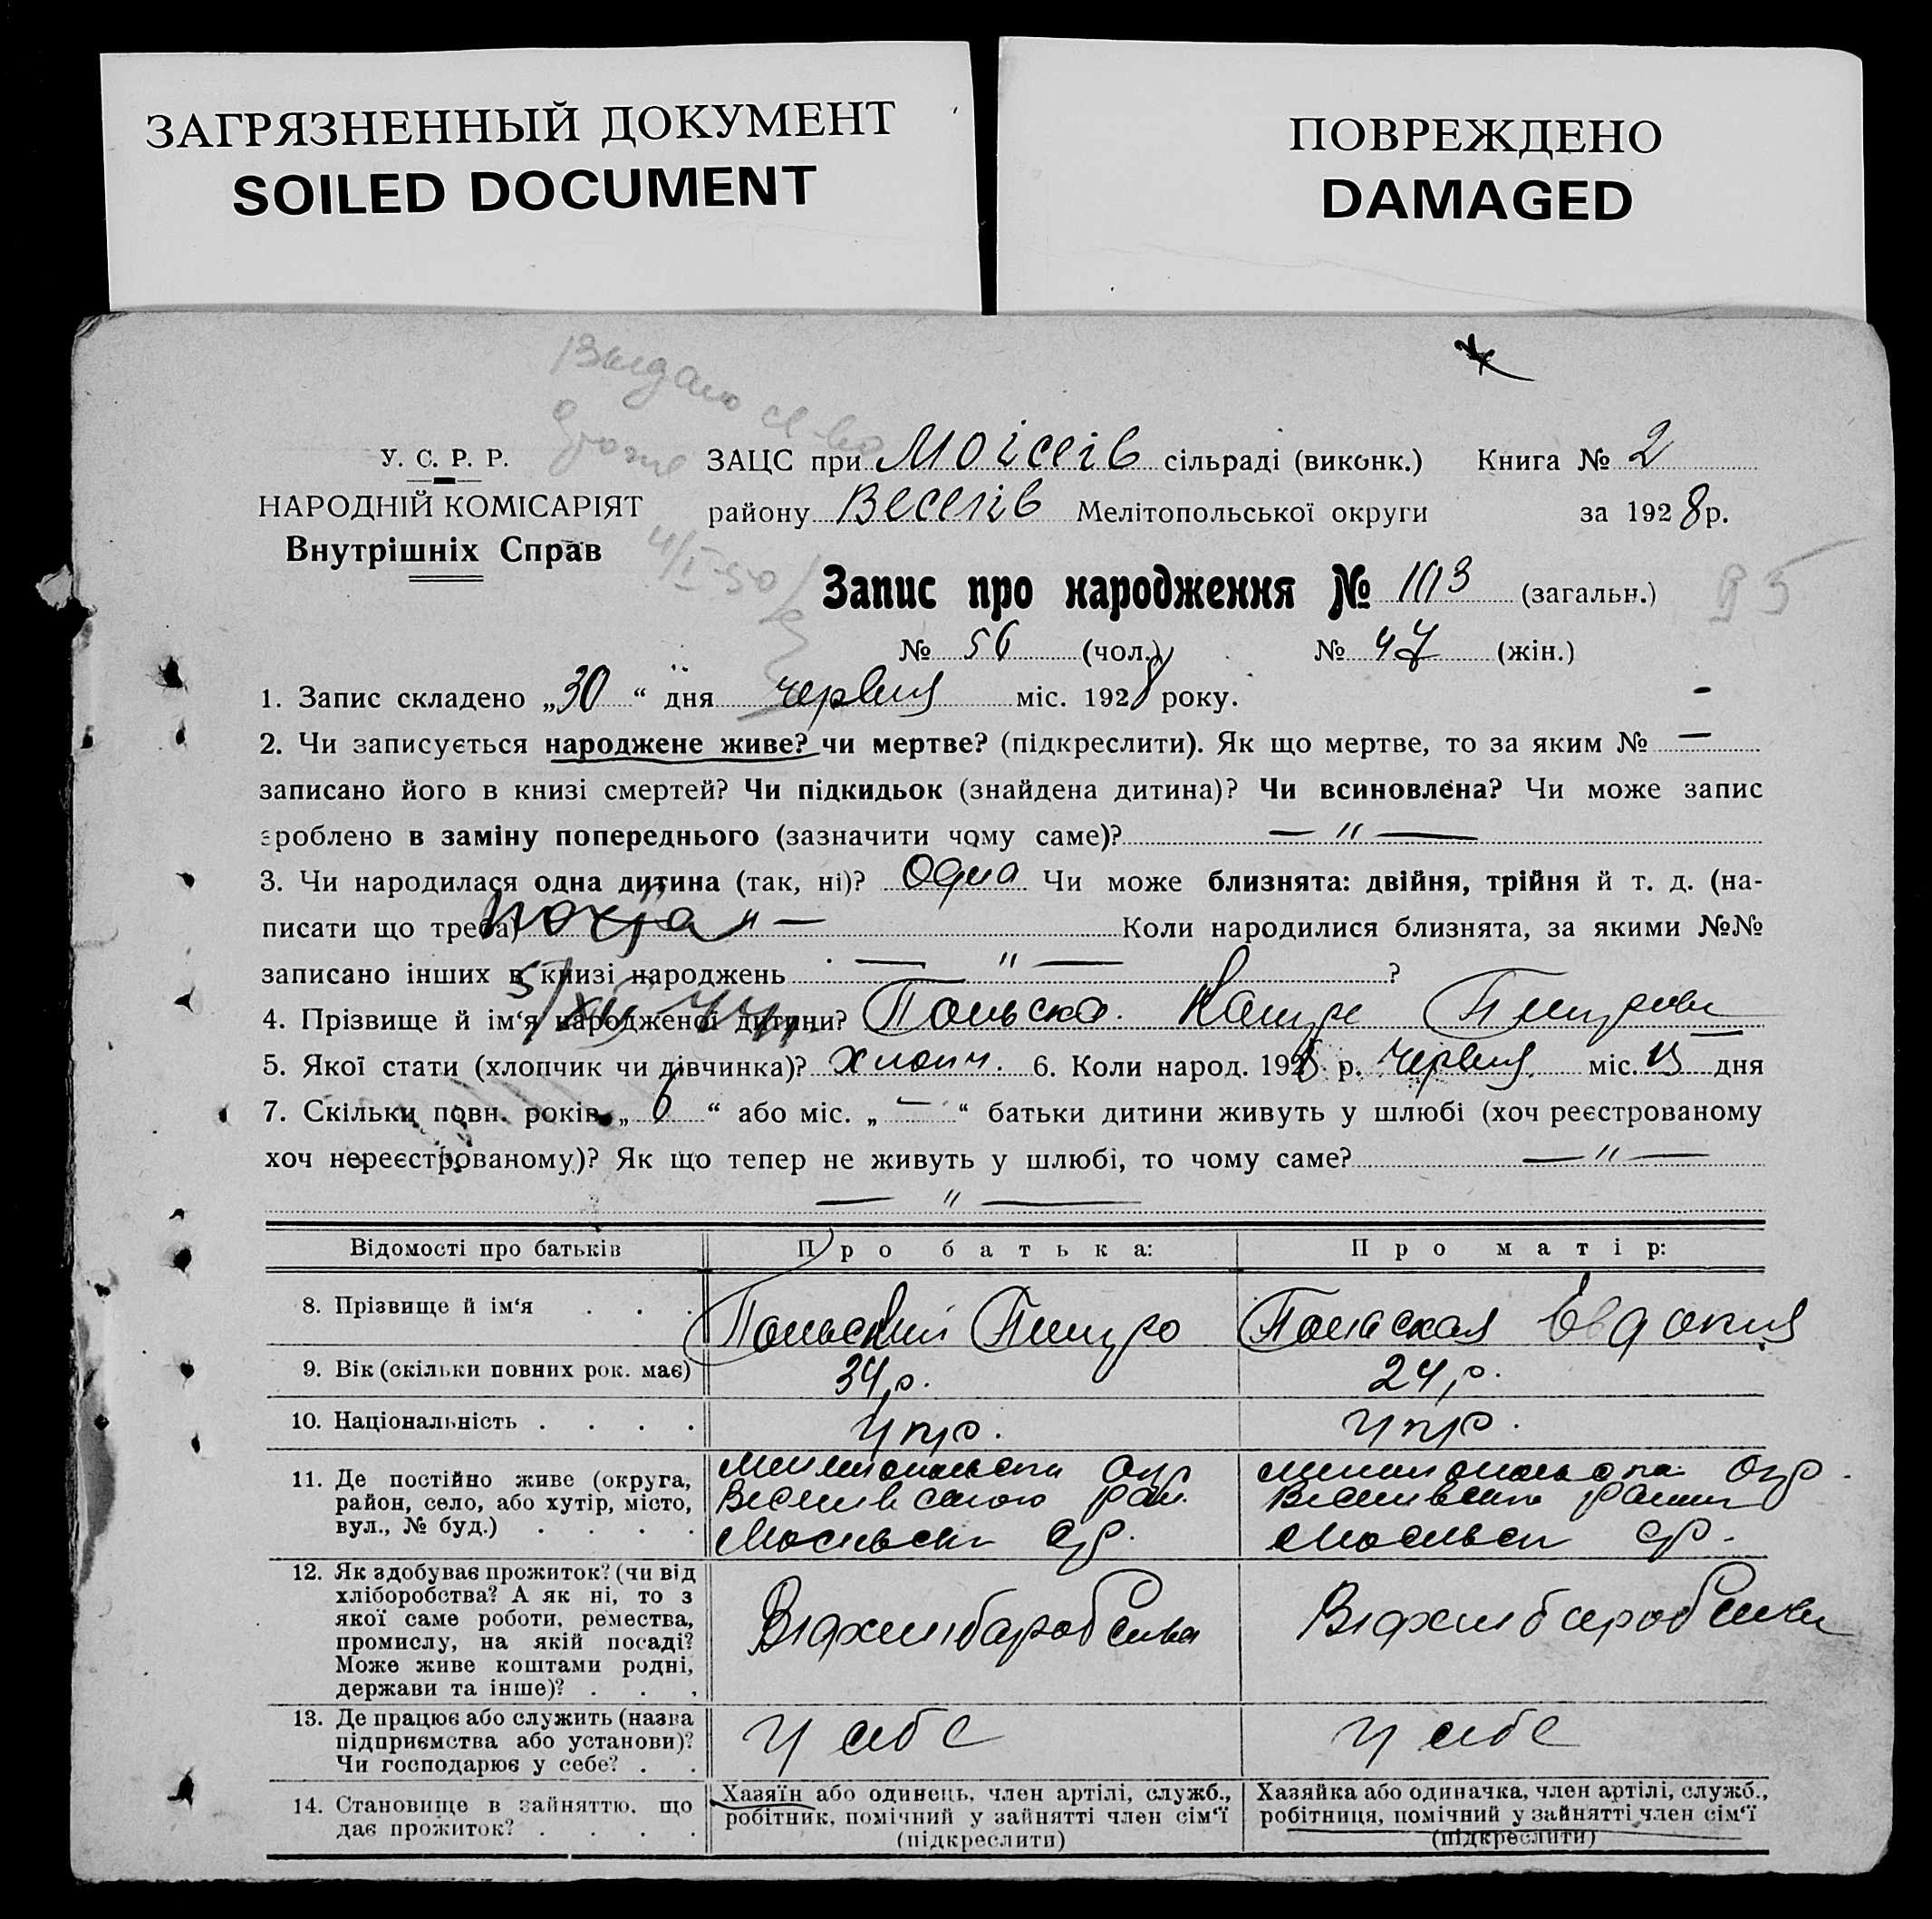 ЗАГРЯЗНЕННЫЙ ДОКУМЕНТ
SOILED DOCUMENT
ПОВРЕЖДЕНО
DAMAGED
Выдано
У. С. Р. Р.
НАРОДНІЙ КОМІСАРІЯТ
Внутрішніх Справ
ЗАЦС при Моісеів сільраді (виконк.) Книга № 2
району Веселів Мелітопольської округи за 1928 р.
Запис про народження № 103 (загальн.)
№ 56 (чол.) № 47 (жін.)
1. Запис складено „30“ дня червня міс. 1928 року.
2. Чи записується народжене живе? чи мертве? (підкреслити). Як що мертве, то за яким № —
записано його в книзі смертей? Чи підкидьок (знайдена дитина)? Чи всиновлена? Чи може запис
зроблено в заміну попереднього (зазначити чому саме)? — " —
3. Чи народилася одна дитина (так, ні)? Одна Чи може близнята: двійня, трійня й т. д. (на-
писати що треба) " — Коли народилися близнята, за якими №№
записано інших в книзі народжень — " — ?
4. Прізвище й ім‘я народженої дитини?
5. Якої стати (хлопчик чи дівчинка)? хлопч. 6. Коли народ. 1928 р. червня міс. дня
7. Скільки повн. років „ 6 “ або міс. „ — “ батьки дитини живуть у шлюбі (хоч реєстрованому
хоч нереєстрованому)? Як що тепер не живуть у шлюбі, то чому саме? — " —
— " —
Відомості про батьків Про батька: Про матір:
8. Прізвище й ім‘я . . . Польский Польская Евдокия
9. Вік (скільки повних рок. має) 34 р. 24 р.
10. Національність . . . . укр. укр.
11. Де постійно живе (округа,
район, село, або хутір, місто,
вул., № буд.) . . . .
12. Як здобував прожиток? (чи від
хліборобства? А як ні, то з
якої саме роботи, ремества,
промислу, на якій посаді?
Може живе коштами родні,
держави та інше)? . . .
13. Де працює або служить (назва
підприємства або установи)?
Чи господарює у себе? . .
у себе у себе
14. Становище в зайняттю, що
дає прожиток? . . . .
Хазяїн або одинець, член артілі, служб.,
робітник, помічний у зайнятті член сім‘ї
(підкреслити)
Хазяйка або одиначка, член артілі, служб.,
робітниця, помічний у зайнятті член сім‘ї
(підкреслити)